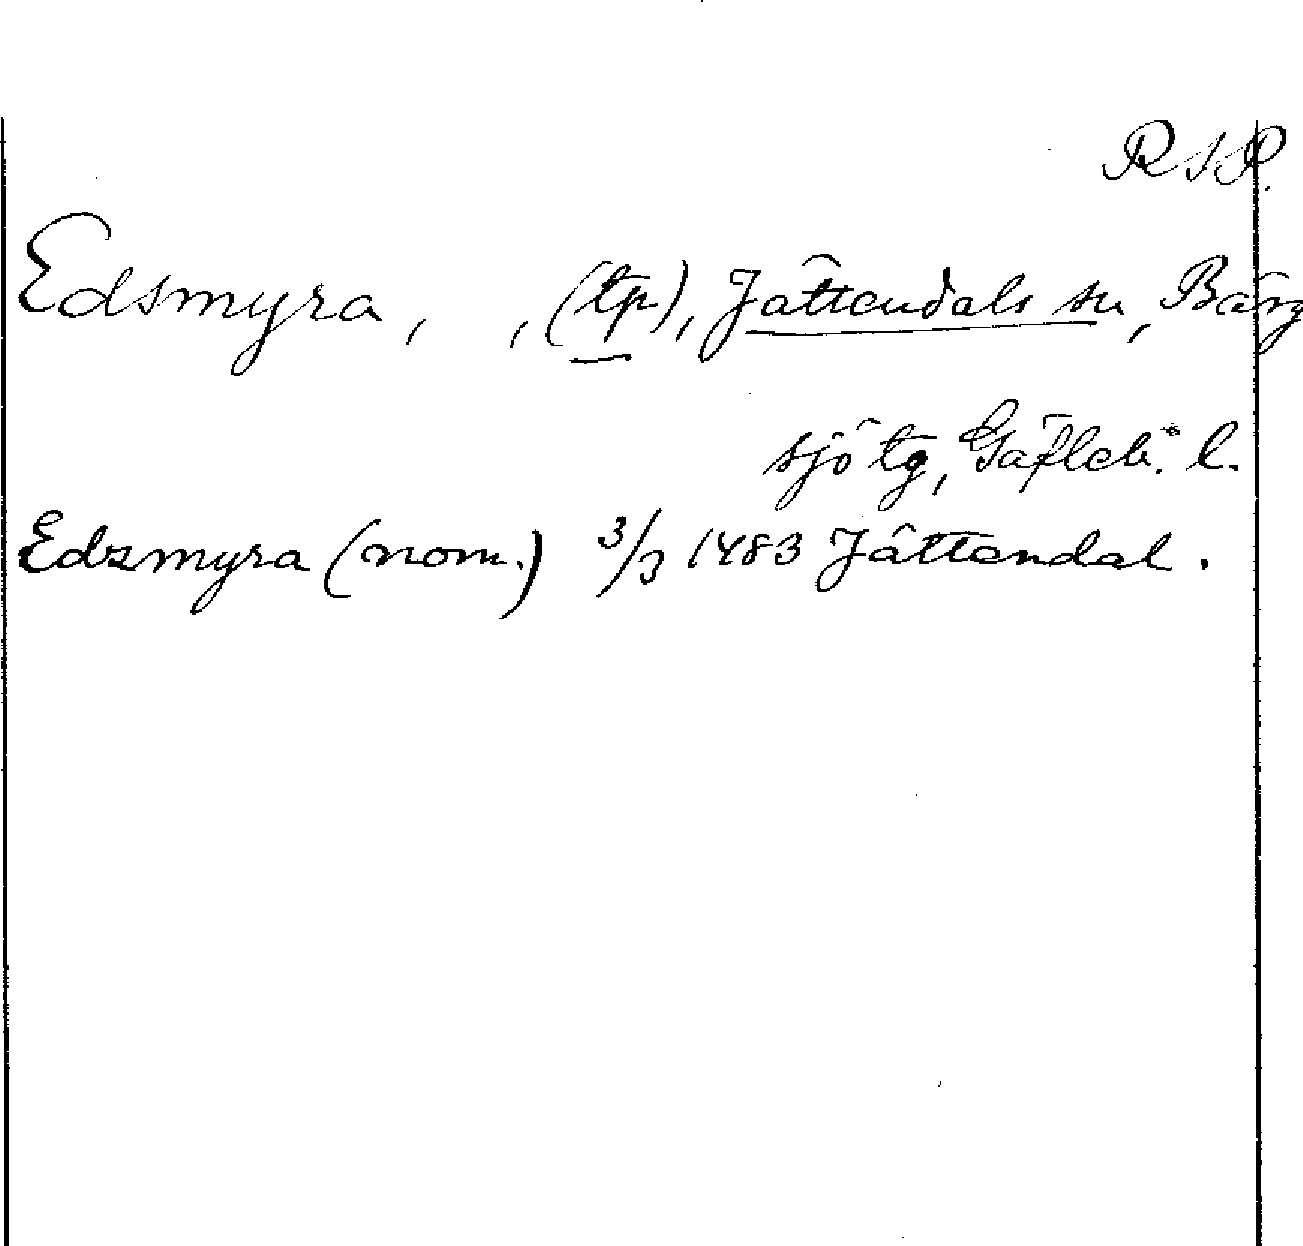 RAP.
Edsmyra, , (tp), Jättendals sn, Bärg
sjö tg, Gäfleb. l.
Edzmyra (nom.) 3/3 1483 Jättendal.